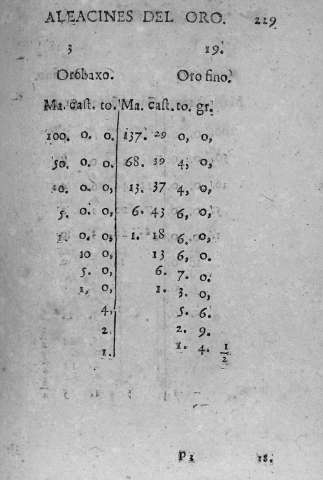 ALEACINES DEL ORO. 229
3 19.
Oro baxo. Oro fino.
Ma. cast. to. Ma. cast. to. gr.
100. 0. 0. 137. 29 0, 0,
50. 0. 0. 68. 39 4, 0,
10. 0. 0, 13. 37 4, 0,
5. 0. 0, 6. 43 6, 0,
1. 0. 0, 1. 18 6. 0,
10 0, 13 6, 0.
5. 0, 6. 7. 0.
1, 0, 1. 3. 0,
4, 5. 6.
2. 2. 9.
1. 1. 4. 1/2
P3 18.